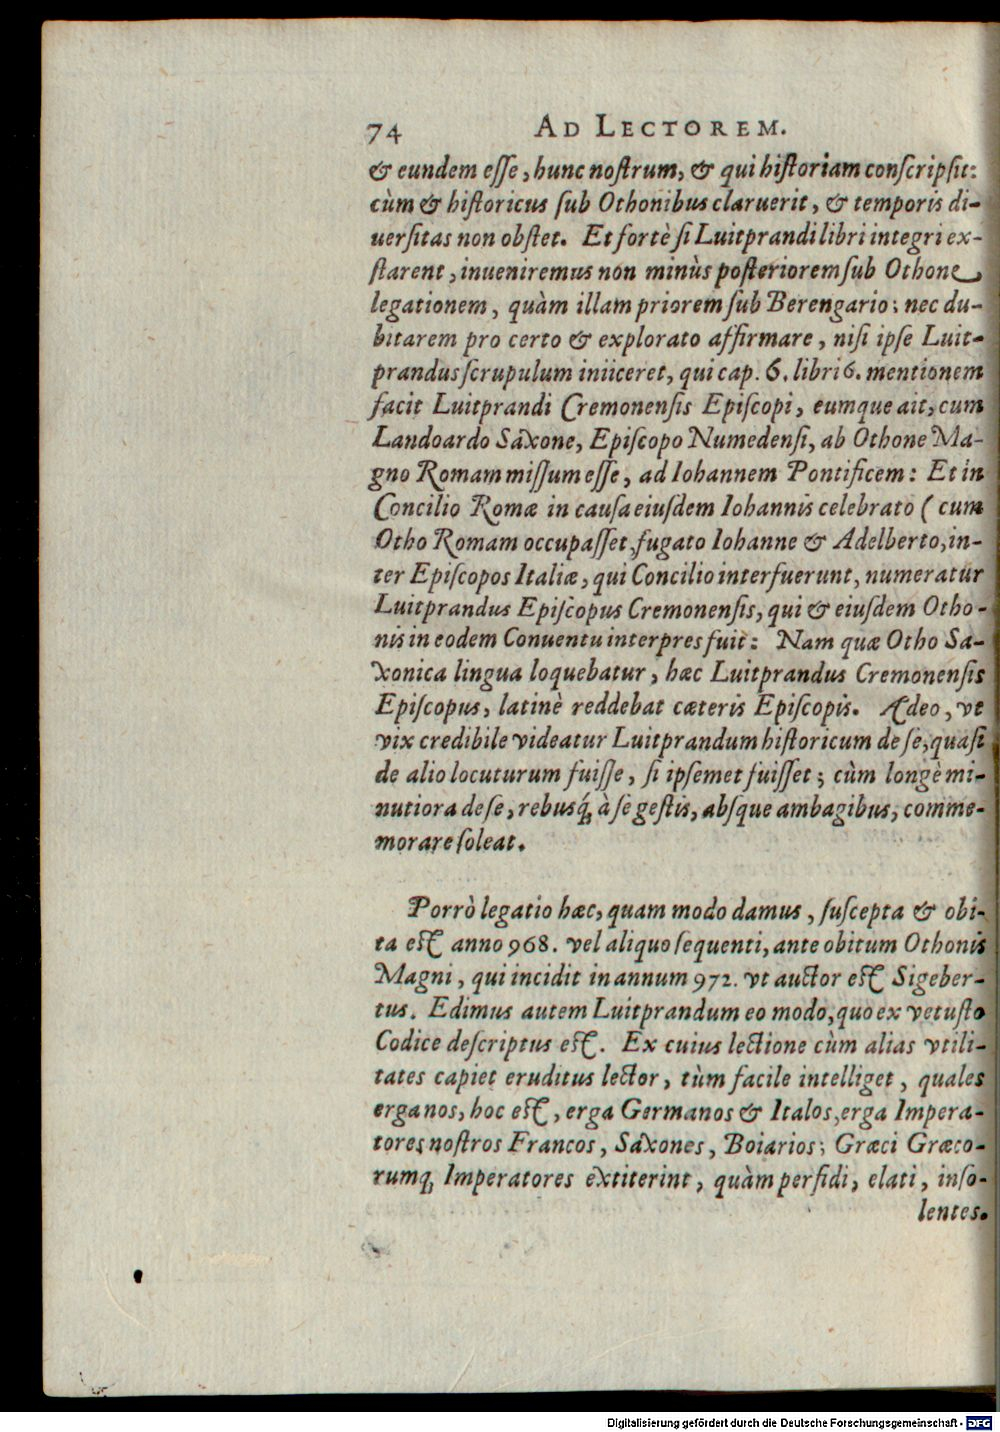 74 AD LECTOREM.
& eundem eſſe, hunc noſtrum, & qui hiſtoriam conſcripſit:
cùm & hiſtoricus ſub Othonibus claruerit, & temporis di-
uerſitas non obſtet. Et fortè ſi Luitprandi libri integri ex-
ſtarent, inueniremus non minùs poſteriorem ſub Othone
legationem, quàm illam priorem ſub Berengario; nec du-
bitarem pro certo & explorato affirmare, niſi ipſe Luit-
prandus ſcrupulum iniiceret, qui cap. 6. libri 6. mentionem
facit Luitprandi Cremonenſis Epiſcopi, eumque ait, cum
Landoardo Saxone, Epiſcopo Numedenſi, ab Othone Ma-
gno Romam miſſum eſſe, ad Iohannem Pontificem: Et in
Concilio Romæ in cauſa eiuſdem Iohannis celebrato ( cum
Otho Romam occupaſſet, fugato Iohanne & Adelberto, in-
ter Epiſcopos Italiæ, qui Concilio interfuerunt, numeratur
Luitprandus Epiſcopus Cremonenſis, qui & eiuſdem Otho-
nis in eodem Conuentu interpres fuit: Nam quæ Otho Sa-
xonica lingua loquebatur, hæc Luitprandus Cremonenſis
Epiſcopus, latinè reddebat cæteris Epiſcopis. Adeo, vt
vix credibile videatur Luitprandum hiſtoricum de ſe, quaſi
de alio locuturum fuiſſe, ſi ipſemet fuiſſet; cùm longè mi-
nutiora de ſe, rebusq́; à ſe geſtis, abſque ambagibus, comme-
morare ſoleat.
Porrò legatio hæc, quam modo damus, ſuſcepta & obi-
ta eſt anno 968. vel aliquo ſequenti, ante obitum Othonis
Magni, qui incidit in annum 972. vt auctor eſt Sigeber-
tus. Edimus autem Luitprandum eo modo, quo ex vetuſto
Codice deſcriptus eſt. Ex cuius lectione cùm alias vtili-
tates capiet eruditus lector, tùm facile intelliget, quales
erga nos, hoc eſt, erga Germanos & Italos, erga Impera-
tores noſtros Francos, Saxones, Boiarios; Græci Græco-
rumq; Imperatores extiterint, quàm perfidi, elati, inſo-
lentes.
Digitalisierung gefördert durch die Deutsche Forschungsgemeinschaft - DFG